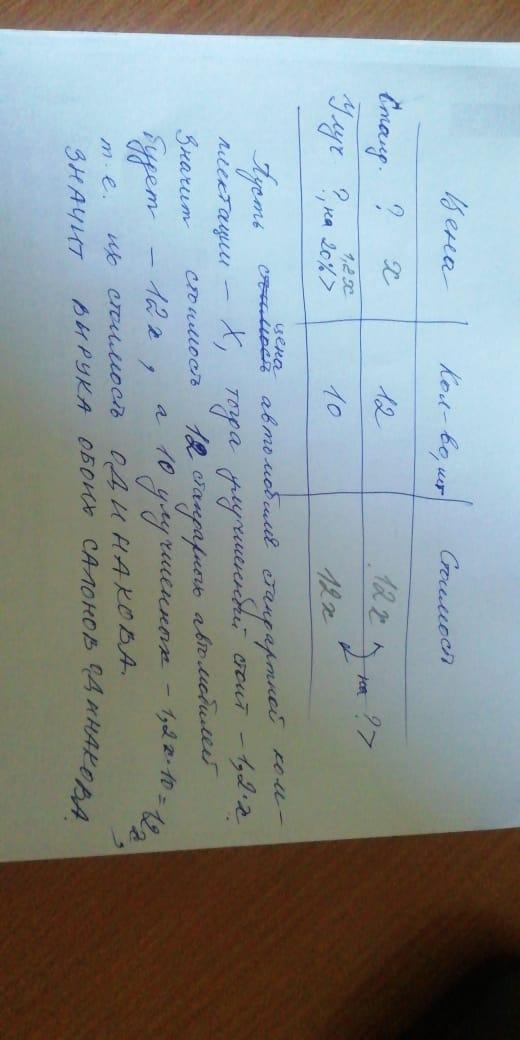 Цена Кол-во, шт Стоимость
Станд. ? х 12 12х
на ? >
Улуч ?, на 20% > 1,2х 10 12х
Пусть цена автомобиля стандартной ком-
плектации – Х, тогда улучшенный стоит – 1,2·х.
Значит стоимость 12 стандартных автомобилей
будет – 12х, а 10 улучшенных – 1,2х·10=12х,
т.е. их стоимость ОДИНАКОВА.
ЗНАЧИТ ВЫРУКА ОБОИХ САЛОНОВ ОДИНАКОВА.